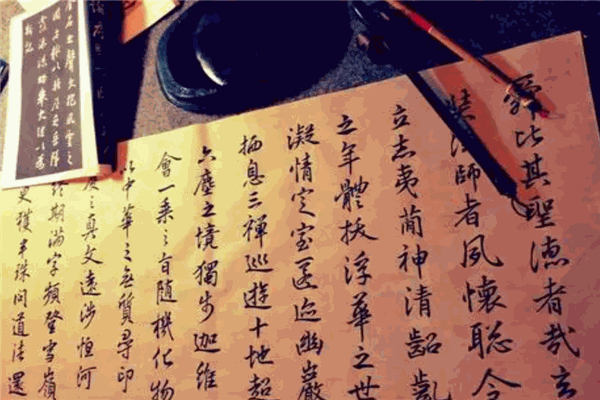 孰比其聖德者哉玄
奘法師者夙懷聰令
立志夷簡神清齠齔
之年體拔浮華之世
凝情定室匿迹幽巖
栖息三禪巡遊十地超
六塵之境獨步迦維
會一乘之旨隨機化物
以中華之无質尋印
度之真文遠涉恒河
終期滿字頻登雪嶺
更獲半珠問道法還